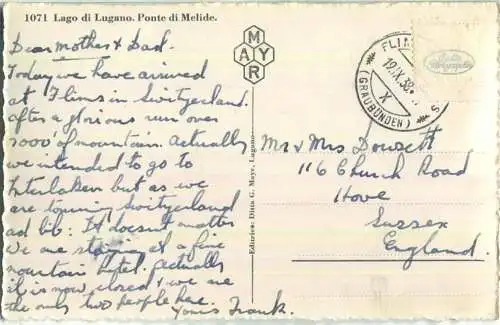 1071 Lago di Lugano. Ponte di Melide.
Dear Mother & Dad.
Today we have arrived
at Flims in Switzerland.
after a glorious run over
7000' of mountain. Actually
we intended to go to
Interlaken but as we
are touring Switzerland
ad lib: It doesnt matter
we are staying at a fine
mountain hotel. Actually
it is now closed & we are
the only two people here.
Yours Frank.
MAYR
Editrice: Ditta G. Mayr, Lugano
FLIMS
19.IX.38
X
(GRAUBÜNDEN)
Mr & Mrs Dowsett
116 Church Road
Hove
Sussex
England.